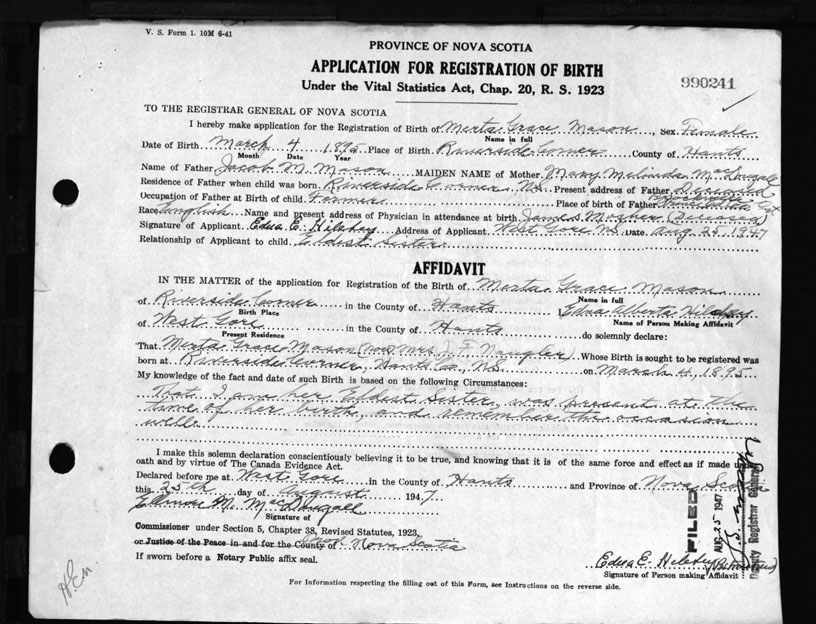 V. S. Form 1. 10M 6-41
PROVINCE OF NOVA SCOTIA
APPLICATION FOR REGISTRATION OF BIRTH
990241
Under the Vital Statistics Act, Chap. 20, R. S. 1923
TO THE REGISTRAR GENERAL OF NOVA SCOTIA
I hereby make application for the Registration of Birth of Merta Grace Mason, Sex Female
Name in full
Date of Birth March 4 1895 Place of Birth Riverside Corner County of Hants
Month Date Year
Name of Father Jacob M. Mason MAIDEN NAME of Mother Mary Melinda MacDougall
Residence of Father when child was born Riverside Corner NS. Present address of Father Deceased
Occupation of Father at Birth of child Farmer Place of birth of Father
Race English Name and present address of Physician in attendance at birth James Mosher (Deceased)
Signature of Applicant Edna E. Hilchey Address of Applicant West Gore NS. Date Aug 25, 1947
Relationship of Applicant to child Eldest Sister
AFFIDAVIT
IN THE MATTER of the application for Registration of the Birth of Merta Grace Mason
Name in full
of Riverside Corner in the County of Hants I, Edna Alberta Hilchey
Birth Place Name of Person Making Affidavit
of West Gore in the County of Hants do solemnly declare:
Present Residence
That Merta Grace Mason (now Mrs. J. F. Naugler) Whose Birth is sought to be registered was
born at Riverside Corner, Hants Co. NS. on March 4, 1895
My knowledge of the fact and date of such Birth is based on the following Circumstances:
That I am her Eldest Sister, was present at the
time of her birth, and remember the occasion
well.
I make this solemn declaration conscientiously believing it to be true, and knowing that it is of the same force and effect as if made under
oath and by virtue of The Canada Evidence Act.
Declared before me at West Gore in the County of Hants and Province of Nova Scotia
this 25th day of August 1947
M. MacDougall
Signature of
Commissioner under Section 5, Chapter 38, Revised Statutes, 1923,
or Justice of the Peace in and for the County of Nova Scotia
If sworn before a Notary Public affix seal.
Edna E. Hilchey
Signature of Person making Affidavit
FILED
AUG 25 1947
Deputy Registrar General
For Information respecting the filling out of this Form, see Instructions on the reverse side.